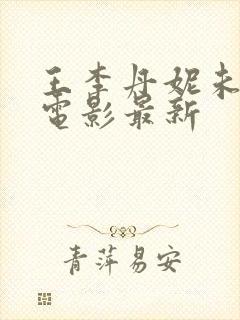 王李丹妮未
電影最新
青萍易安